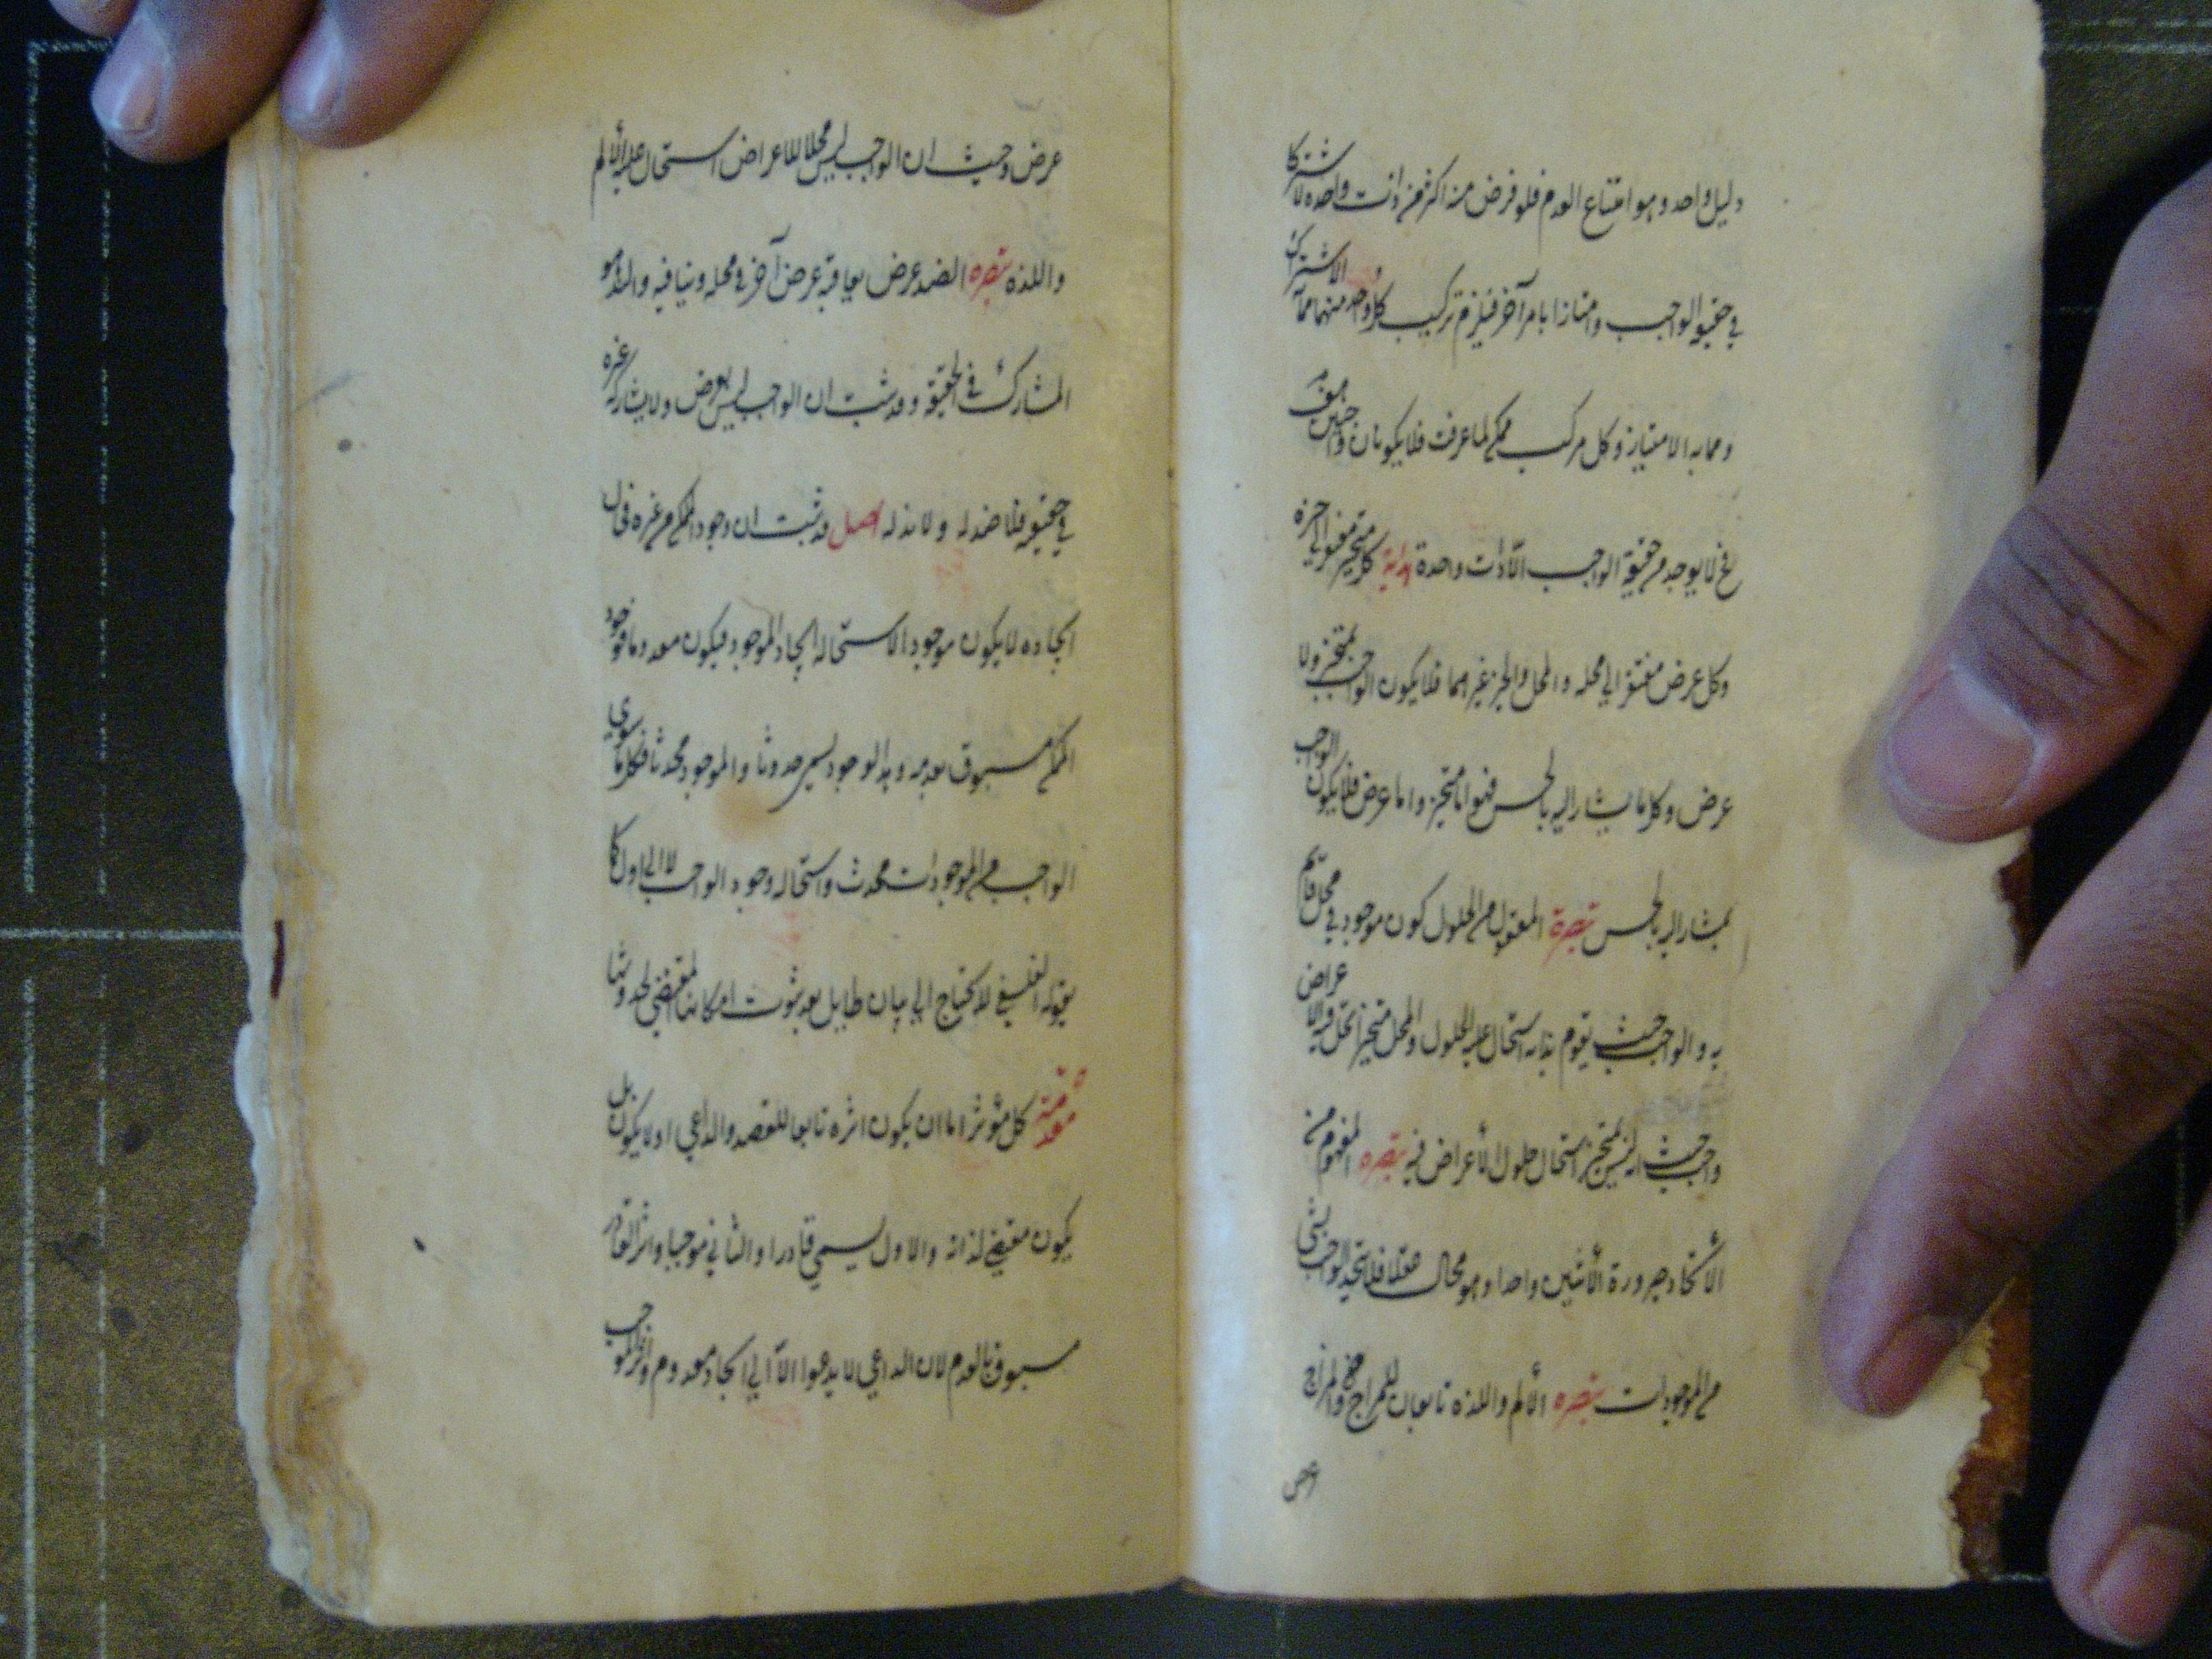 دليل واحد وهو امتناع العدم فلو فرض منه اكثر من ذات واحده لاشتركا
في حقيقه الواجب وامتازا بامر آخر فيلزم تركيب كل واحد منهما مما به الاشتراك
ومما به الامتياز وكل مركب ممكن لما عرفت فلا يكونان واجبين هف
فلا يوجد من حقيقة الواجب الا ذات واحدة هداية كل متحيز مفتقر الى حيزه
وكل عرض مفتقر الى محله والمحل والحيز غيرهما فلا يكون الواجب بمتحيز ولا
عرض وكل ما يشار اليه بالحس فهو اما متحيز واما عرض فلا يكون الواجب
بمشار اليه بالحس تبصرة المعقول من الحلول كون موجود في محل قائم
به والواجب حيث يقوم بذاته استحال عليه الحلول والمحل متحيز يحل فيه الاعراض
وواجب حيث ليس بمتحيز استحال حلول الأعراض فيه تبصره المفهوم من
الأتحاد صيرورة الأثنين واحدا وهو محال عقلا فلا يتحد الواجب بشئ
من الموجودات تبصره الألم واللذة تابعان للمزاج والمزاج
عرض
عرض وحيث ان الواجب ليس محلا للاعراض استحال عليه الألم
واللذه تبصره الضد عرض يعاقبه عرض آخر في محله وينافيه والند هو
المشارك في الحقيقة وقد ثبت ان الواجب ليس بعرض ولا يشاركه غيره
في حقيقته فلا ضد له ولا ند له اصل قد ثبت ان وجود الممكن من غيره فحال
ايجاده لا يكون موجودا لاستحاله ايجاد الموجود فيكون معدوما فوجود
الممكن مسبوق بعدمه وهذا الوجود يسمى حدوثا والموجود محدثا فكل ما سوى
الواجب من الموجودات محدث واستحاله وجود الواجب لا الى اول كما
يقوله الفلسفي لا يحتاج الى بيان طايل بعد ثبوت امكانها المقتضي لحدوثها
مقدمة كل مؤثر اما ان يكون اثره تابعا للقصد والداعي او لا يكون بل
يكون مقتضى لذاته والاول يسمى قادرا والثاني موجبا واثر القادر
مسبوق بالعدم لان الداعي لا يدعوا الا الى ايجاد معدوم واثر الموجب